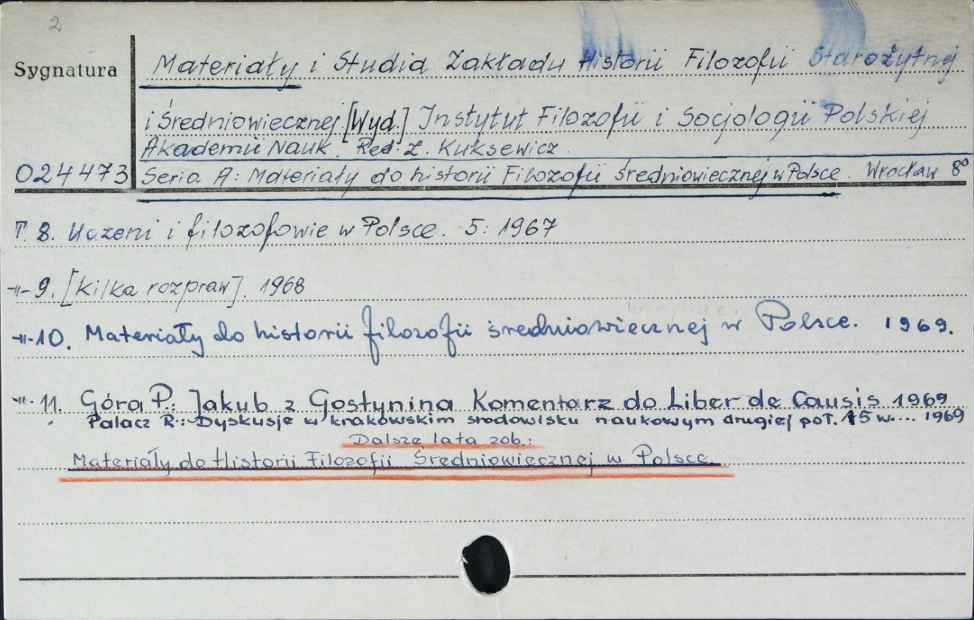 2
Sygnatura
Materiały i Studia Zakładu Historii Filozofii Starożytnej
i Średniowiecznej [Wyd.] Instytut Filozofii i Socjologii Polskiej
Akademii Nauk. Red. Z. Kuksewicz.
024473 Seria A: Materiały do historii Filozofii Średniowiecznej w Polsce. Wrocław 8°
T. 8. Uczeni i filozofowie w Polsce. 5: 1967
-"- 9. [Kilka rozpraw]. 1968
-"- 10. Materiały do historii filozofii średniowiecznej w Polsce. 1969.
-"- 11. Góra P.: Jakub z Gostynina Komentarz do Liber de Causis 1969
Palacz R.: Dyskusje w krakowskim środowisku naukowym drugiej poł. 15 w.... 1969
Dalsze lata zob.:
Materiały do Historii Filozofii Średniowiecznej w Polsce.